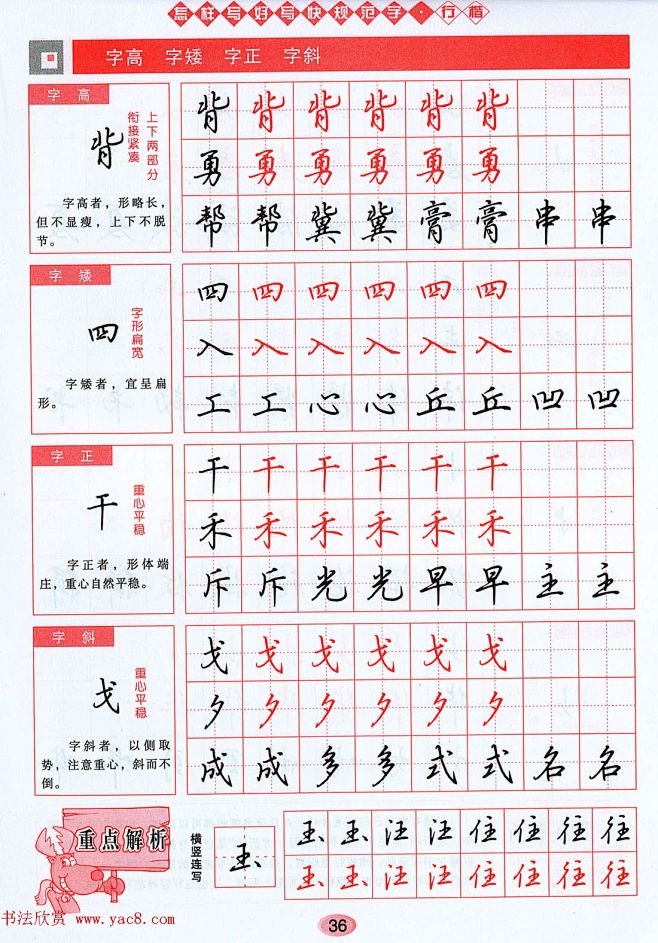 怎样写好写快规范字·行楷
字高 字矮 字正 字斜
字高
背
上下两部分
衔接紧凑
字高者，形略长，
但不显瘦，上下不脱
节。
背背背背背背
勇勇勇勇勇勇
帮帮冀冀膏膏串串
字矮
四
字形扁宽
字矮者，宜呈扁
形。
四四四四四四
入入入入入入
工工心心丘丘凹凹
字正
干
重心平稳
字正者，形体端
庄，重心自然平稳。
干干干干干干
禾禾禾禾禾禾
斥斥光光早早主主
字斜
戈
重心平稳
字斜者，以侧取
势，注意重心，斜而不
倒。
戈戈戈戈戈戈
夕夕夕夕夕夕
成成多多式式名名
重点解析
横竖连写
王
王王汪汪住住往往
王王汪汪住住往往
36
书法欣赏 www.yac8.com